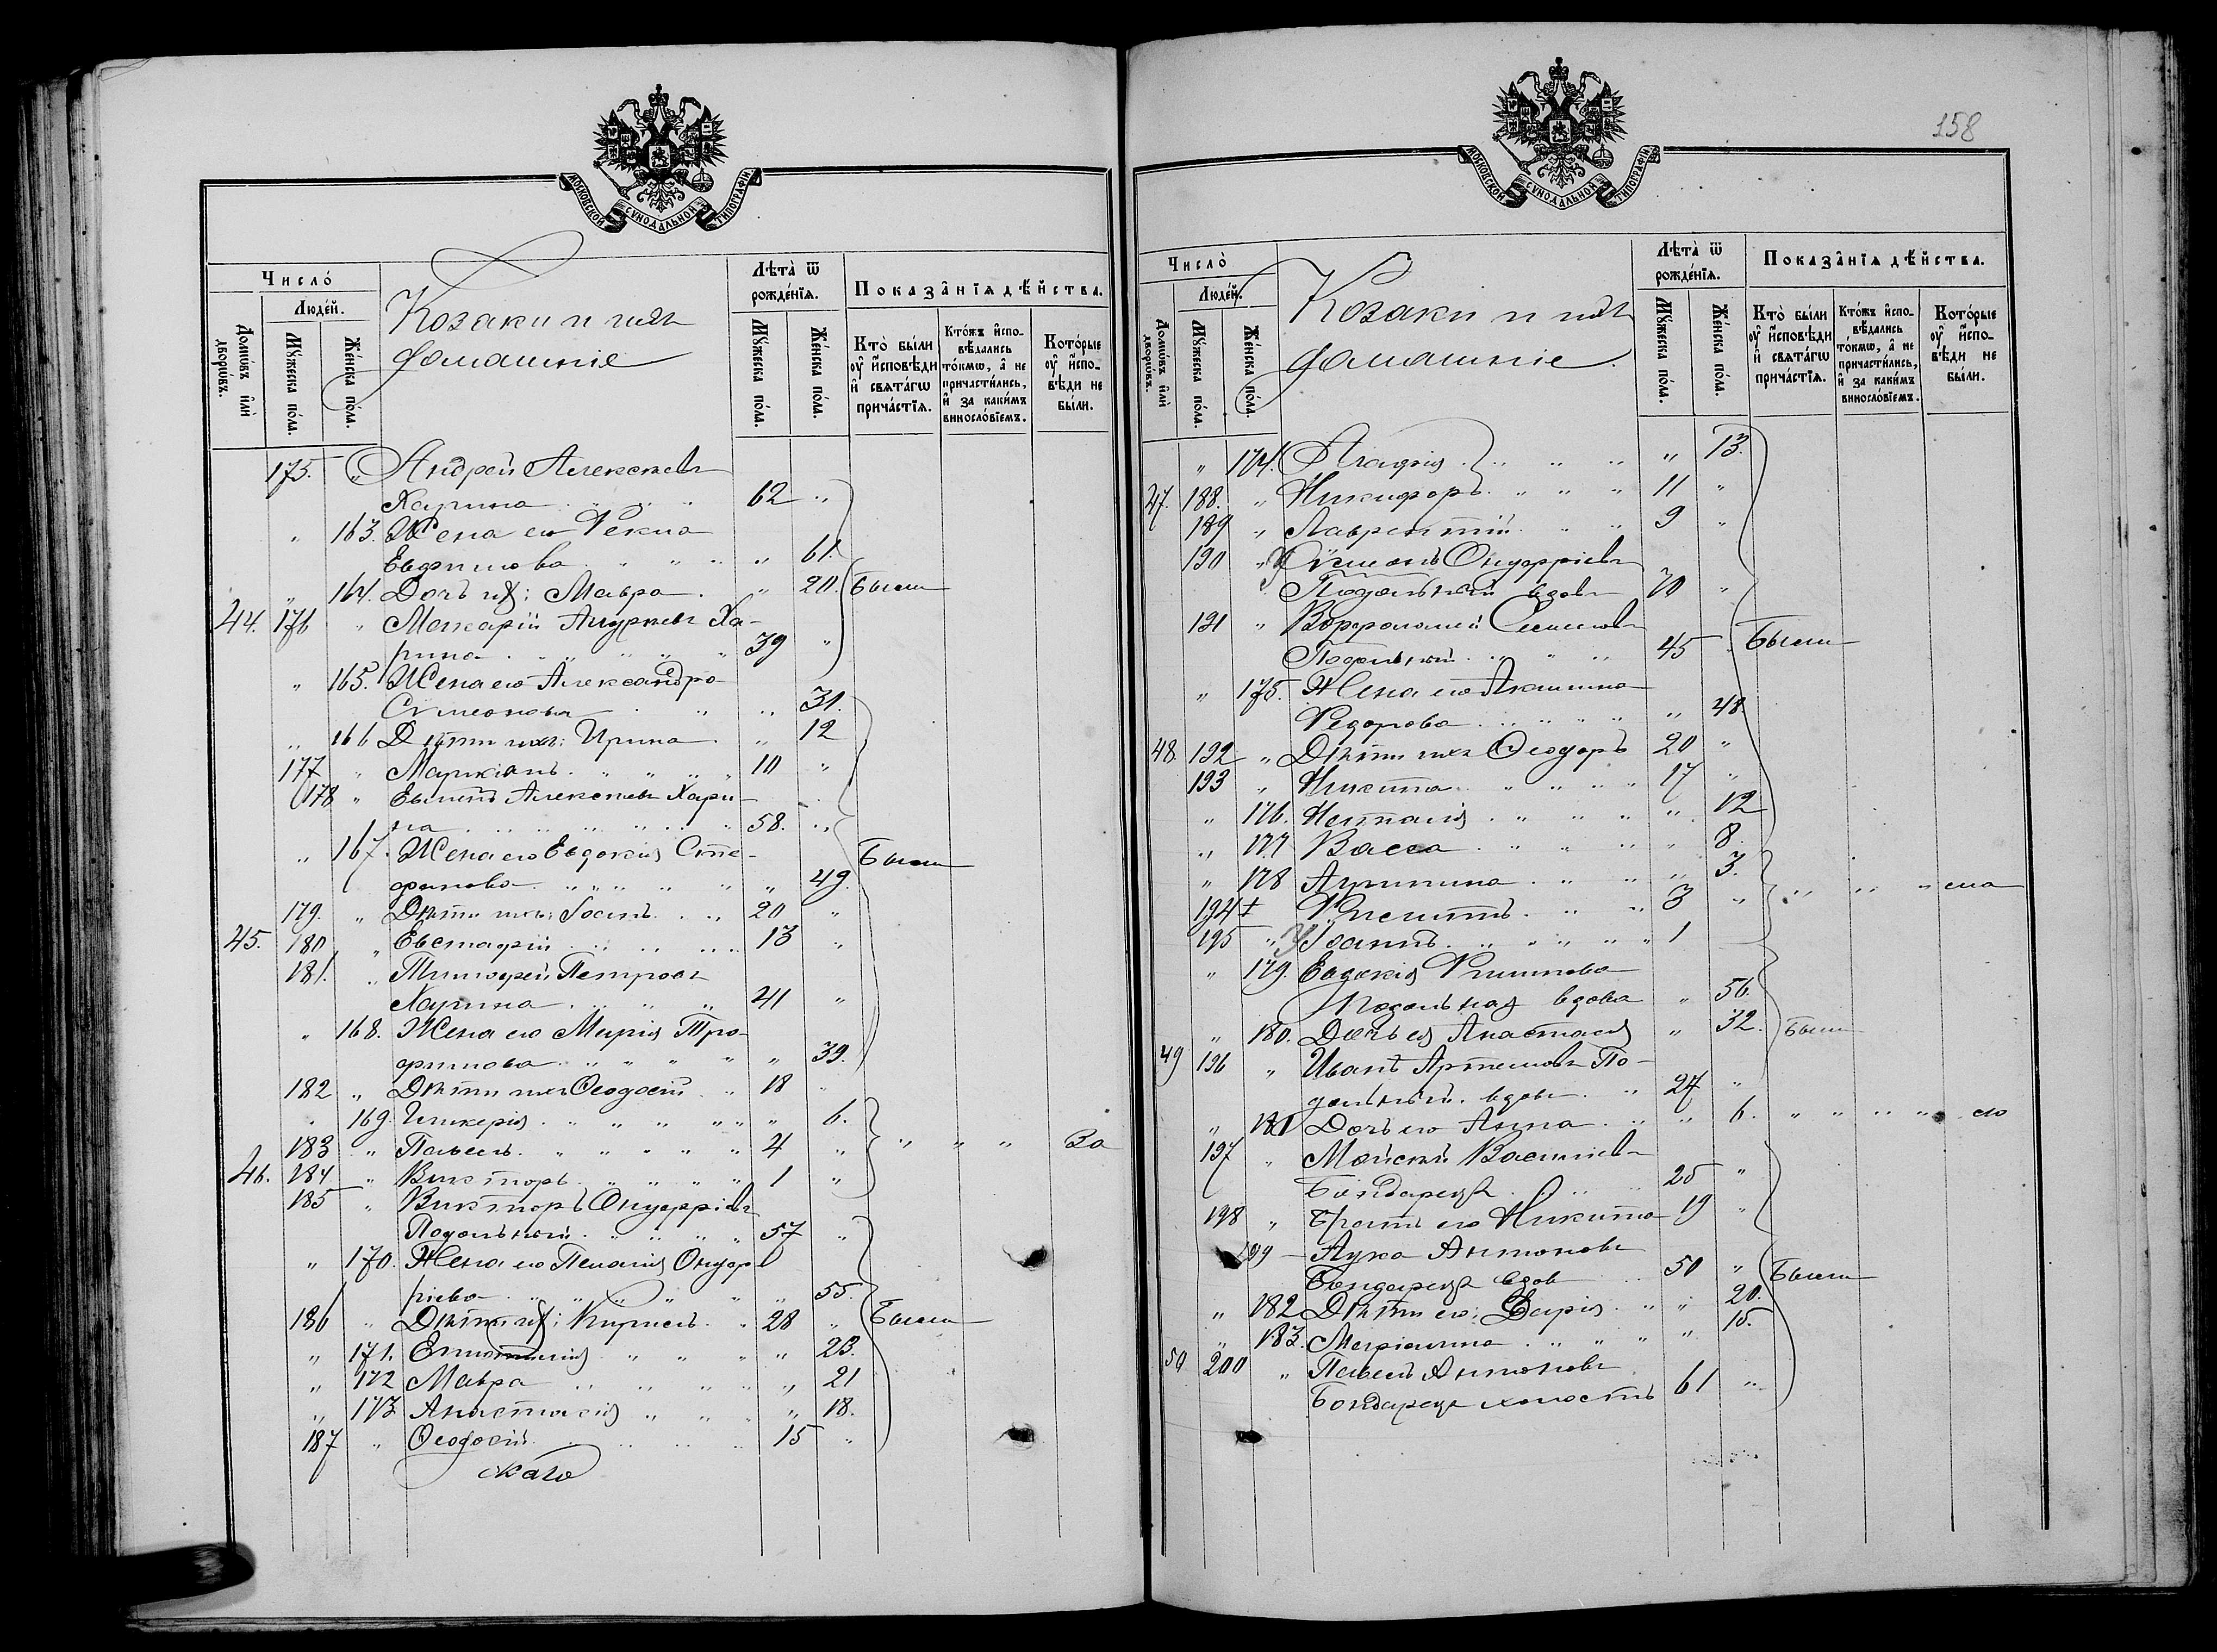 МОСКОВСКОЙ СѴНОДАЛЬНОЙ ТИПОГРАФІИ
Число̀
Людей.
Домѡвъ и҆лѝ дворѡвъ.
Мꙋжеска по́ла.
Же́нска по́ла.
Козаки и ихъ
домашніе
Лѣта̀ ѿ рожде́нїѧ.
Мꙋжеска по́ла.
Же́нска по́ла.
Показа̑нїѧ дѣ́йства.
Кто̀ бы́ли ᲂу҆ и҆сповѣди и҆ свѧта́гѡ прича́стїѧ.
Кто́жъ и҆спо-вѣдались то́кмѡ, а҆ не причасти́лись, и҆ за каки́мъ винословіемъ.
Кото́рые ᲂу҆ и҆спо-вѣди не бы́ли.
175. " Андрей Алексѣевъ
Харина 62 "
" 163. Жена его Ѳекла
Евфимова " 61.
" 164. Дочь их: Мавра " 20. Были
44. 176 " Макарій Андреевъ Ха-
рина 39 "
" 165. Жена его Александра
Сѵмеонова " 31.
" 166 Дѣти ихъ: Ирина " 12
177 " Маркіанъ 10 "
178 " Алексѣевъ Хари-
на 58. "
" 167. Жена его Евдокія Сте-
фанова " 49. Были
179. " Дѣти ихъ: 20 "
45. 180 " Евстафій 13 "
181. " Тимофей Петровъ
Харина 41 "
" 168. Жена его Марія Тро-
фимова " 39.
182 " Дѣти ихъ Ѳеодосій 18 "
" 169. Гликерія " 6.
183 " Павелъ 4 " " " " За
46. 184 " Викторъ 1 "
185 " Викторъ Онуфріевъ
Подольный 57 "
" 170. Жена его Пелагія Онуф
ріева " 55.
186 " Дѣти их: Кириллъ 28 " Были
" 171. 23.
" 172 Мавра " 21
" 173 Анастасія " 18.
187 " Ѳеодосій 15 "
МОСКОВСКОЙ СѴНОДАЛЬНОЙ ТИПОГРАФІИ
158
Число̀
Людей.
Домѡвъ и҆лѝ дворѡвъ.
Мꙋжеска по́ла.
Же́нска по́ла.
Козаки и ихъ
домашніе.
Лѣта̀ ѿ рожде́нїѧ.
Мꙋжеска по́ла.
Же́нска по́ла.
Показа̑нїѧ дѣ́йства.
Кто̀ бы́ли ᲂу҆ и҆сповѣди и҆ свѧта́гѡ прича́стїѧ.
Кто́жъ и҆спо-вѣдались то́кмѡ, а҆ не причасти́лись, и҆ за каки́мъ винословіемъ.
Кото́рые ᲂу҆ и҆спо-вѣди не бы́ли.
" 174. Агафія " 13.
47. 188. " Никифоръ 11 "
189 " Лаврентій 9 "
190 " Сѵмеонъ Онуфріевъ
Подольный вдовъ 70 "
191 " Ворфоломей Семеновъ
Подольный 45 Были
" 175. Жена его Акилина
Ѳедорова " 48.
48. 192 " Дѣти ихъ Ѳеодоръ 20 "
193 " Никита 17 "
" 176. Наталія " 12
" 177 Васса " 8.
" 178 Агрипина " 3. " " " ма
194 Филиппъ 3 "
195 " Іоаннъ 1
" 179. Евдокія Филипова
Подольная вдова " 56.
" 180. Дочь ея Анастасія " 32. Были
49 196 " Иванъ Артемовъ По-
дольный вдовъ 27 "
" 181 Дочь его Анна " 6. " " " "
197 " Мойсей Василіевъ
Бондарец 25 "
198 " Братъ его Никита 19 "
199 Лука Антоновъ
Бондарец вдов 50 " Были
" 182 Дѣти его: Дарія " 20.
" 183. Маріанна " 15.
50 200 " Павелъ Антоновъ
Бондарец холостъ 61 "